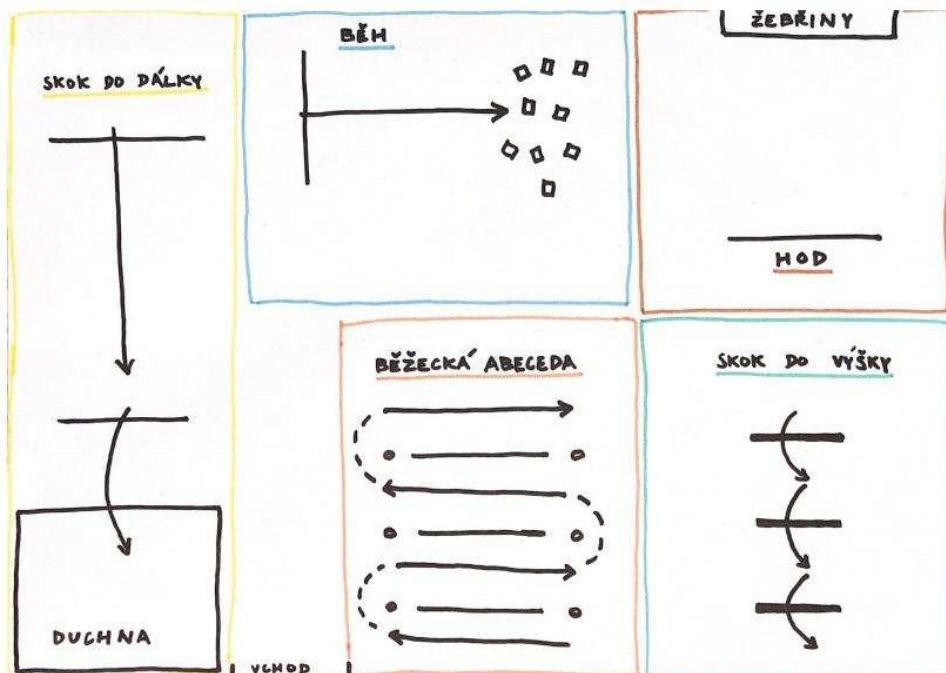 SKOK DO DÁLKY
BĚH
ŽEBŘINY
HOD
BĚŽECKÁ ABECEDA
SKOK DO VÝŠKY
DUCHNA
VCHOD